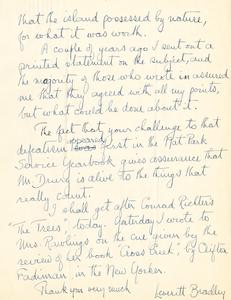 that the island possessed by nature,
for what it was worth.
A couple of years ago I sent out a
printed statement on the subject, and
the majority of those who wrote in assured
me that they agreed with all my points,
but what could he done about it.
The fact that your challenge to that
appeared
defeatism was first in the Nat. Park
Service Yearbook gives assurance that
Mr Drury is alive to the things that
really count.
I shall get after Conrad Richter's
"The Trees," today. Saturday I wrote to
Mrs. Rawlings on the cue given by the
review of her book "Cross Creek", by Clifton
Fadiman, in the New Yorker.
Thank you very much
Leverett Bradley